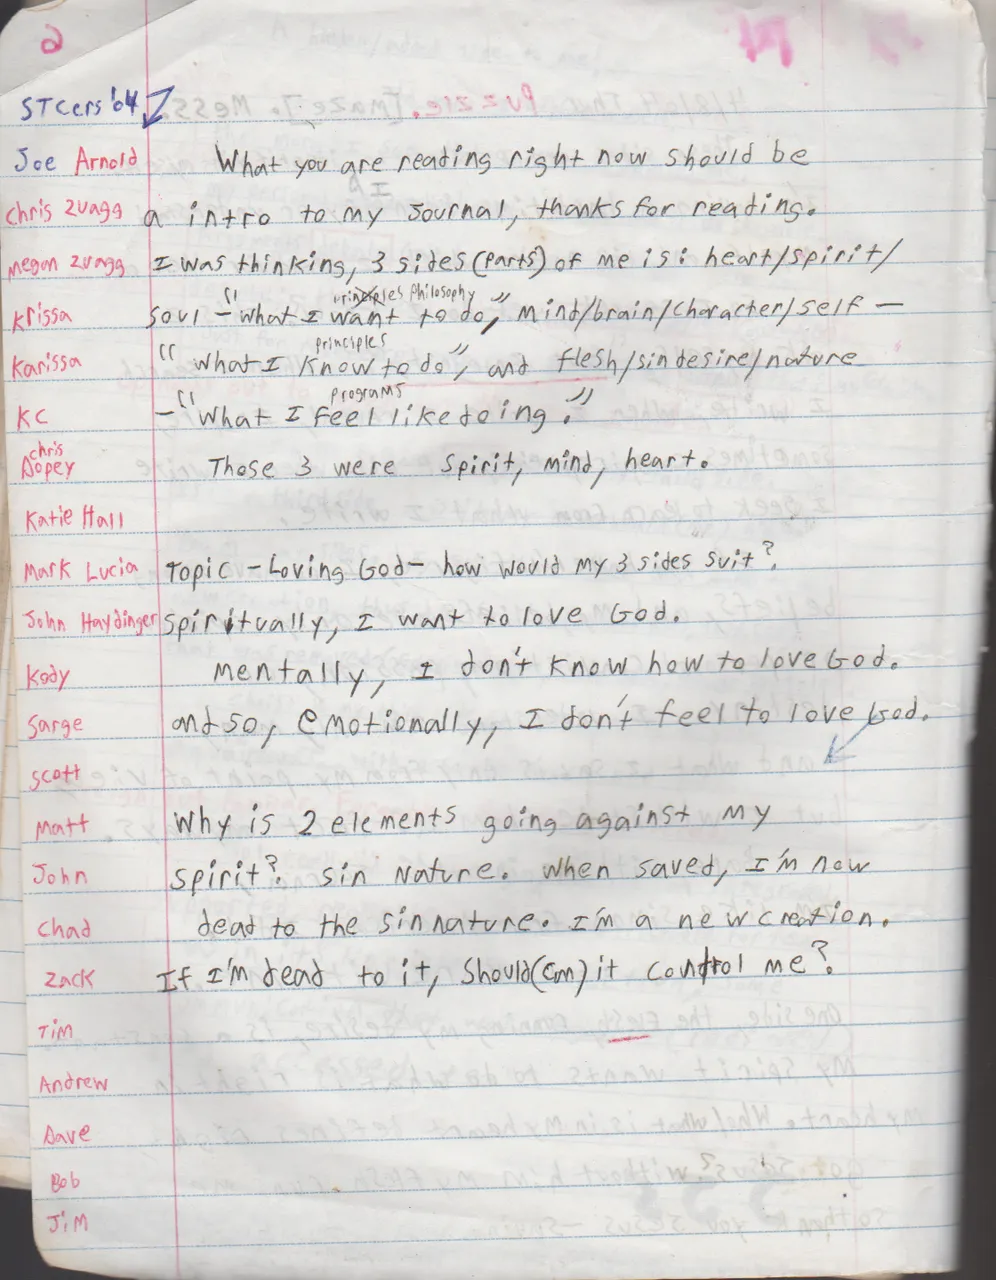 2
STCers '04
Joe Arnold
What you are reading right now should be
I
chris zuagg
a intro to my Journal, thanks for reading.
megan zuagg
I was thinking, 3 sides (parts) of me is: heart/spirit/
principles philosophy
Krissa
soul - "what I want to do," mind/brain/character/self -
principles
Karissa
"what I know to do", and flesh/sin desire/nature
programs
KC
- "what I feel like doing."
chris
Dopey
Those 3 were spirit, mind, heart.
Katie Hall
Mark Lucia
Topic - Loving God - how would my 3 sides suit?
John Haydinger
Spiritually, I want to love God.
Kody
mentally, I don't know how to love God.
Sarge
and so, emotionally, I don't feel to love God.
Scott
Matt
Why is 2 elements going against my
John
spirit? Sin Nature. When saved, I'm now
Chad
dead to the sin nature. I'm a new creation.
Zack
If I'm dead to it, should (can) it control me?
Tim
Andrew
Dave
Bob
Jim